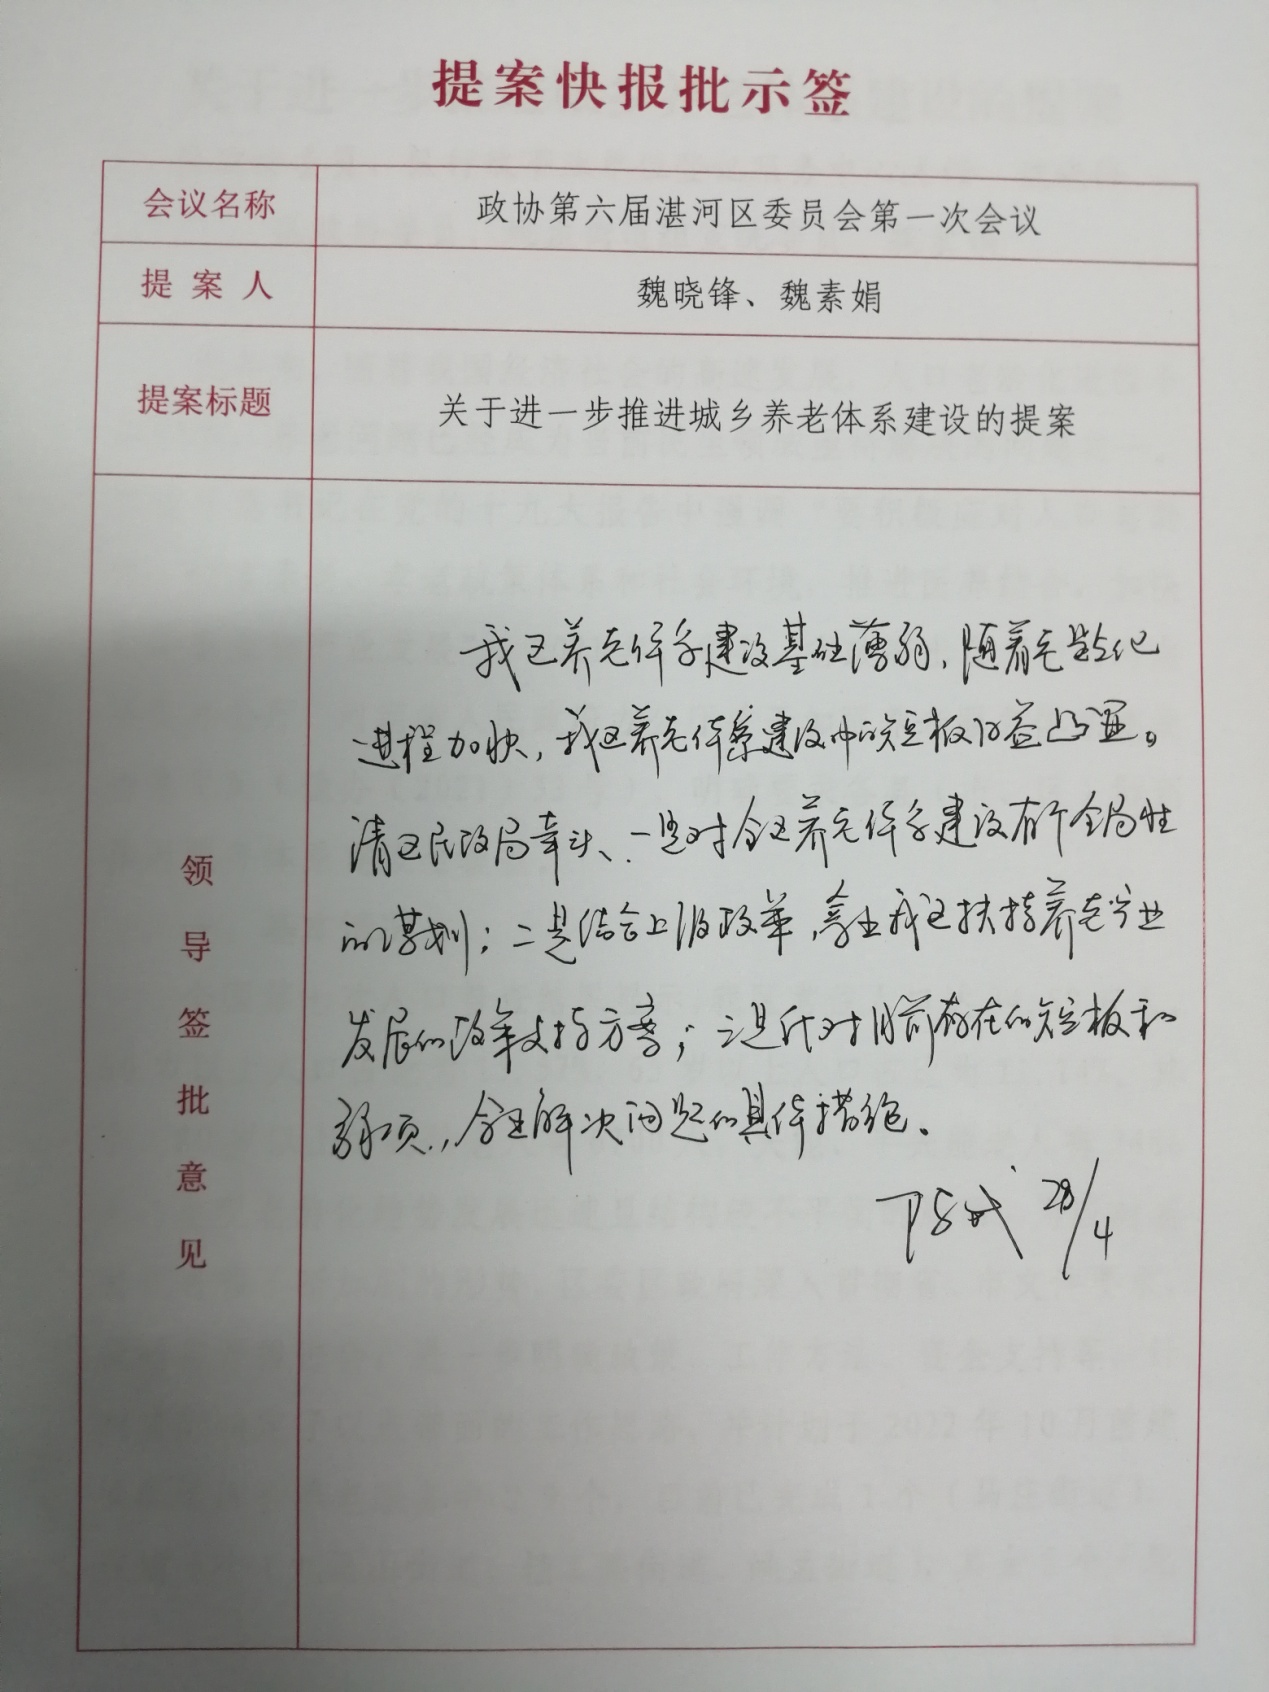 提案快报批示签
会议名称
政协第六届湛河区委员会第一次会议
提案人
魏晓锋、魏素娟
提案标题
关于进一步推进城乡养老体系建设的提案
领导签批意见
我区养老体系建设基础薄弱，随着老龄化
进程加快，我区养老体系建设中的短板日益凸显。
请区民政局牵头、一是对全区养老体系建设有个全局性
的谋划；二是结合上级政策，拿出我区扶持养老产业
发展的政策支持方案；三是针对目前存在的短板和
弱项，拿出解决问题的具体措施。
28/4